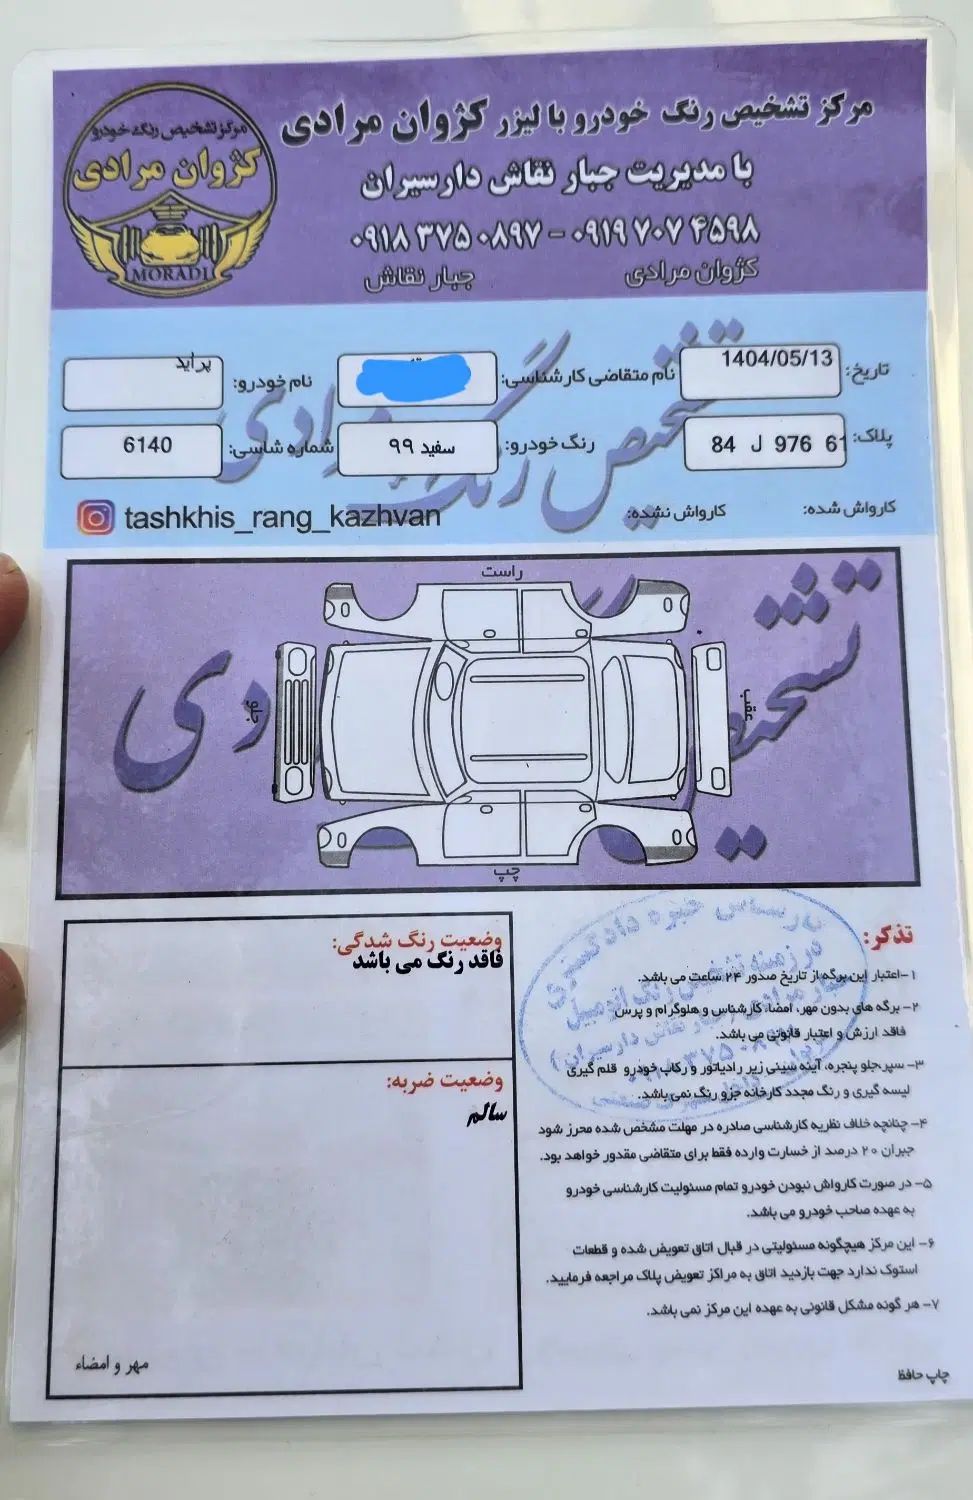 مرکز تشخیص رنگ خودرو
کژوان مرادی
MORADI
مرکز تشخیص رنگ خودرو با لیزر کژوان مرادی
با مدیریت جبار نقاش دارسیران
۰۹۱۸ ۳۷۵ ۰۸۹۷ - ۰۹۱۹ ۷۰۷ ۴۵۹۸
کژوان مرادی جبار نقاش
تاریخ: 1404/05/13 نام متقاضی کارشناسی: نام خودرو: پراید
پلاک: 84 ل 976 61 رنگ خودرو: سفید ۹۹ شماره شاسی: 6140
کارواش شده: کارواش نشده: tashkhis_rang_kazhvan
تشخیص رنگ مرادی
راست
جلو
عقب
چپ
وضعیت رنگ شدگی:
فاقد رنگ می باشد
وضعیت ضربه:
سالم
مهر و امضاء
تذکر:
۱-اعتبار این برگه از تاریخ صدور ۲۴ ساعت می باشد.
۲- برگه های بدون مهر، امضاء کارشناس و هلوگرام و پرس
فاقد ارزش و اعتبار قانونی می باشد.
۳- سپر،جلو پنجره، آینه سینی زیر رادیاتور و رکاب خودرو قلم گیری
لیسه گیری و رنگ مجدد کارخانه جزو رنگ نمی باشد.
۴- چنانچه خلاف نظریه کارشناسی صادره در مهلت مشخص شده محرز شود
جبران ۲۰ درصد از خسارت وارده فقط برای متقاضی مقدور خواهد بود.
۵- در صورت کارواش نبودن خودرو تمام مسئولیت کارشناسی خودرو
به عهده صاحب خودرو می باشد.
۶- این مرکز هیچگونه مسئولیتی در قبال اتاق تعویض شده و قطعات
استوک ندارد جهت بازدید اتاق به مراکز تعویض پلاک مراجعه فرمایید.
۷- هر گونه مشکل قانونی به عهده این مرکز نمی باشد.
چاپ حافظ